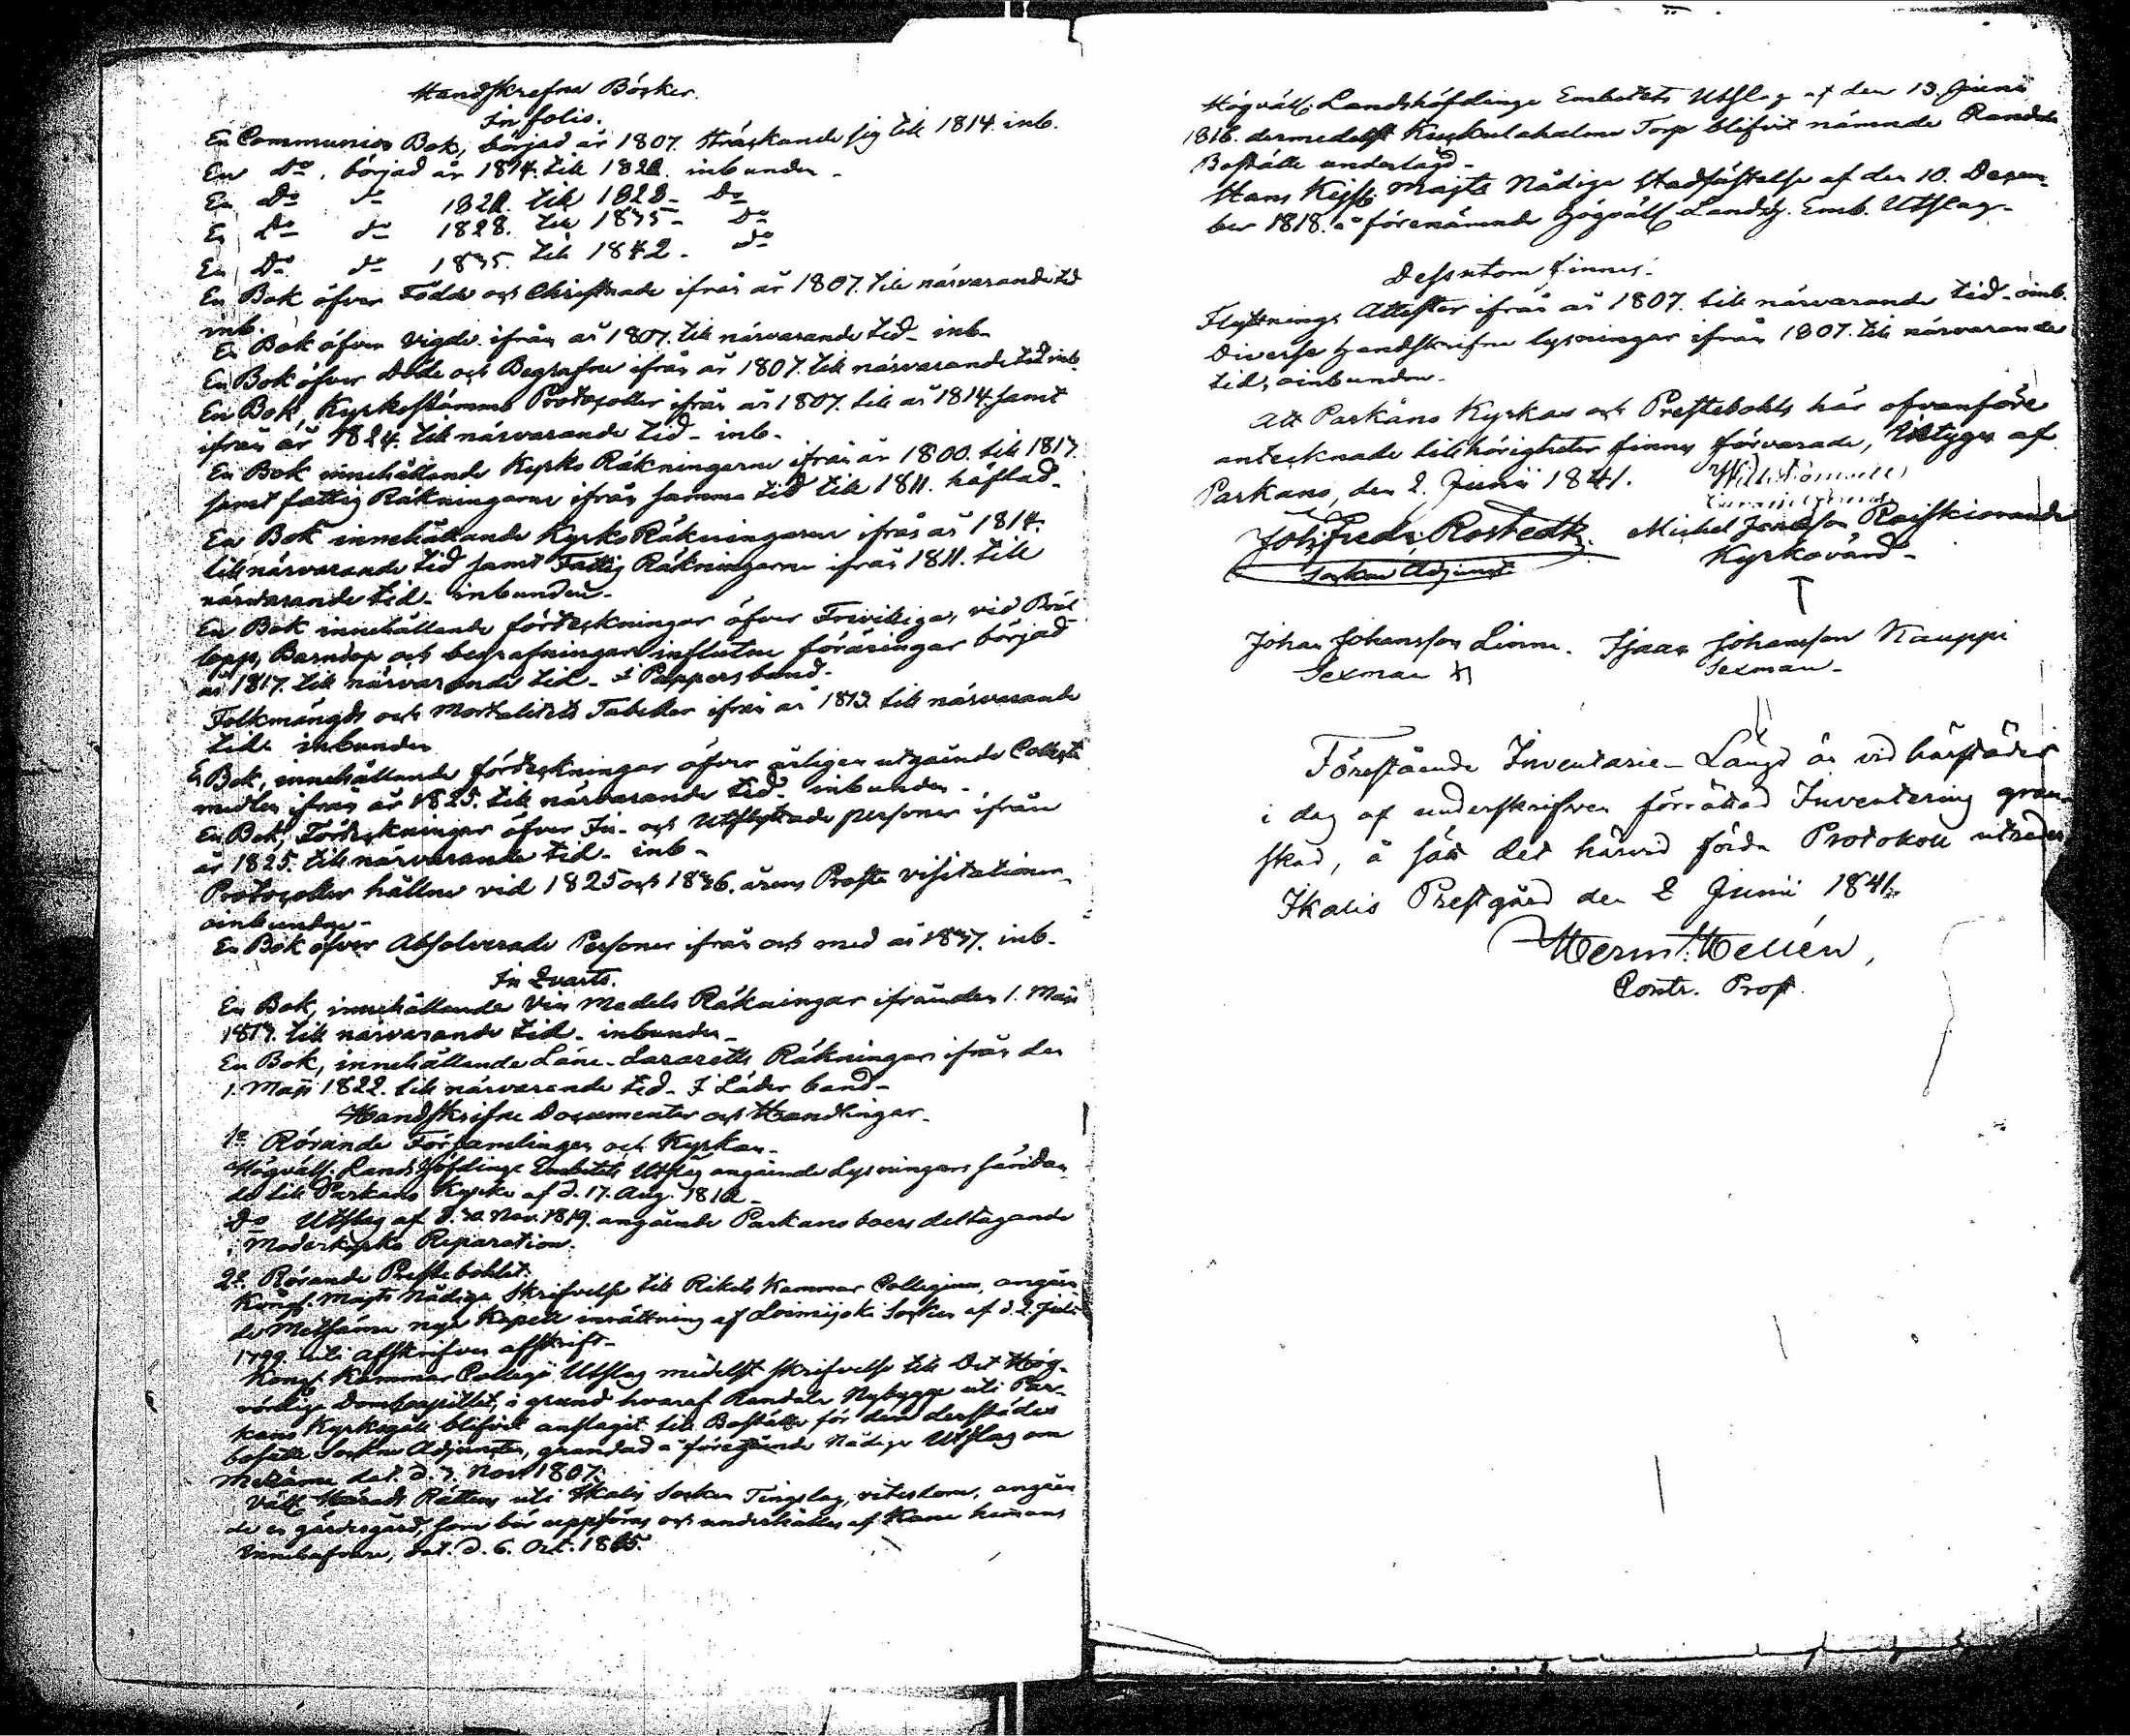 Handskrefne Böcker.
In folio.
En Communion Bok, börjad år 1807. sträckande sig till 1814. inb.
En do, börjad år 1814. till 1821. inbunden.
En do do 1821. till 1828. do
En do do 1828. till 1835. do
En do do 1835. till 1842. do
En Bok öfver Födde och Christnade ifrån år 1807. till närvarande tid
inb.
En Bok öfver Vigde ifrån år 1807. till närvarande tid. inb.
En Bok öfver Döde och Begrafne ifrån år 1807. till närvarande tid inb.
En Bok, Kyrkostämmo Protocoller ifrån år 1807. till år 1814. samt
ifrån år 1824. till närvarande tid. inb.
En Bok innehållande Kyrko Räkningarne ifrån år 1800. till 1817.
samt fattig Räkningarne ifrån samma tid till 1811. häftad.
En Bok innehållande Kyrko Räkningarne ifrån år 1817.
till närvarande tid samt Fattig Räkningarne ifrån 1811. till
närvarande tid. inbunden.
En Bok innehållande förteckningar öfver Frivilliga, vid Bröl-
lopp, Barndop och begrafningar influtne föräringar börjad
år 1817. till närvarande tid. i Pappersband.
Folkmängds och Mortalitets Tabeller ifrån år 1813 till närvarande
tid. inbunden
En Bok, innehållande förteckningar öfver årligen utgående Collect
medlen ifrån år 1825. till närvarande tid. inbunden.
En Bok, Förteckningar öfver In- och Utflyttade personer ifrån
år 1825. till närvarande tid. inb.
Protocoller hållne vid 1825 och 1836. årens Prosta visitationer,
oinbundne.
En Bok öfver Absolverade Personer ifrån och med år 1837. inb.
In Quarto.
En Bok, innehållande Vin Medels Räkningar ifrån den 1. Maji
1817. till närvarande tid. inbunden.
En Bok, innehållande Läne-Lazaretts Räkningar ifrån den
1. Maji 1822. till närvarande tid. I Läder band.
Handskrifne Documenter och Handlingar.
1o Rörande Församlingen och Kyrkan.
Högvälb. Landshöfdinge Embetets Utslag angående Lysningars sändan-
de till Parkano Kyrka af d. 17. Aug. 1812.
Do Utslag af d. 30. Nov. 1819. angående Parkanoboers deltagande
i Moderkyrko Reparation.
2o Rörande Prestebohlet.
Kongl. Majts Nådiga Skrifvelse till Rikets Kammar Collegium, angåen
de Metsäma nya Kapell inrättning af Loimijoki Socken af d. 2. Juli
1799. uti afskrifven afskrift.
Kongl. Kammar Collegii Utslag medelst skrifvelse till Det Hög-
vördige Domkapitlet, i grund hvaraf Randala Nybygge uti Par-
kano Kyrkogäll blifvit anslaget till Boställe för den derstädes
befintl. Sockne Adjuncten, grundad å föregående Nådiga Utslag om
Metsäma dat. d. 3. Nov. 1807.
Välb. Härads Rättens uti Ikalis Socken Tingslag, vitesdom, angåen
de en gärdesgård, som bör uppföras och underhållas af Kane hemans
innehafvare, dat. d. 6. Oct. 1815.
Högvälb. Landshöfdinge Embetets Utslag af den 13. Junii
1816. dermedelst Kuckulaholma Torp blifvit nämnde Randala
Boställe underlagd.
Hans Kejserl. Majts Nådiga Stadfästelse af den 10. Decem-
ber 1818. å förenämnde Högvälb. Landsh. Emb. Utslag.
Dessutom finnes.
Flyttnings Attester ifrån år 1807. till närvarande tid. oinb.
Diverse handskrifne lysningar ifrån 1807. till närvarande
tid, oinbundne.
Att Parkano Kyrkas och Prestebohls här ofvanföre
antecknade tillhörigheter finnas förvarade, Vittygas af
Parkano, den 2. Junii 1841.
Joh. Fredr. Rostedt. Michel Jonasson Raiskioranda
Socken Adjunct Kyrkovärd.
Johan Johansson Linna. Isaac Johansson Kauppi
Sexman Sexman.
Förestående Inventarie-Längd är vid härstädes
i dag af underskrifven förrättad Inventering gran-
skad, å sätt det härvid förda Protokoll utreder
Ikalis Prestgård den 2 Junii 1841.
Herm. Hellén,
Contr. Prost.